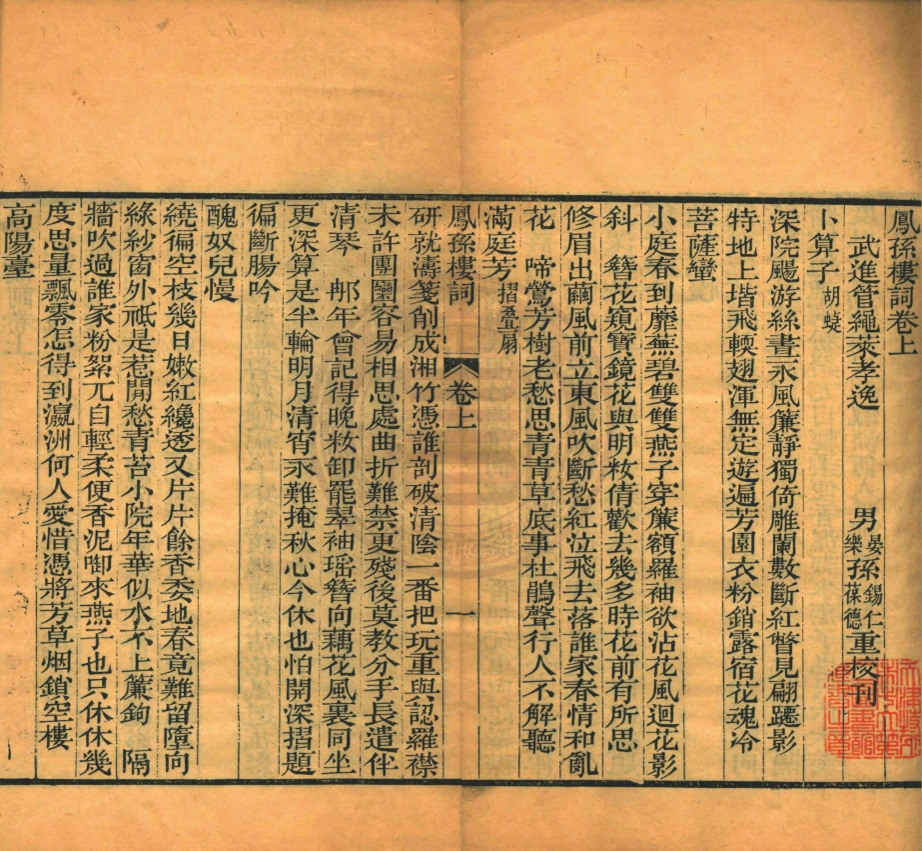 鳳孫樓詞卷上
武進管繩萊孝逸 男晏樂孫錫仁葆德重校刊
卜算子胡蜨
深院颺游絲晝永風簾靜獨倚雕闌數斷紅瞥見翩躚影
特地上堦飛輭翅渾無定遊遍芳園衣粉銷露宿花魂冷
菩薩蠻
小庭春到蘼蕪碧雙雙燕子穿簾額羅袖欲沾花風迴花影
斜 簪花窺寶鏡花與明妝倩歡去幾多時花前有所思
修眉出繭風前立東風吹斷愁紅泣飛去落誰家春情和亂
花 啼鶯芳樹老愁思青青草底事杜鵑聲行人不解聽
滿庭芳摺疊扇
鳳孫樓詞 卷上 一
研就濤箋削成湘竹憑誰剖破清陰一番把玩重與認羅襟
未許團圞容易相思處曲折難禁更殘後莫教分手長遣伴
清琴 那年曾記得晚妝卸罷翠袖瑶簪向藕花風裏同坐
更深算是半輪明月清宵永難掩秋心今休也怕開深摺題
徧斷腸吟
醜奴兒慢
繞徧空枝幾日嫩紅纔透又片片餘香委地春竟難留墮向
綠紗窗外祗是惹閒愁青苔小院年華似水不上簾鉤 隔
牆吹過誰家粉絮兀自輕柔便香泥啣來燕子也只休休幾
度思量飄零怎得到瀛洲何人愛惜憑將芳草烟鎖空樓
高陽臺